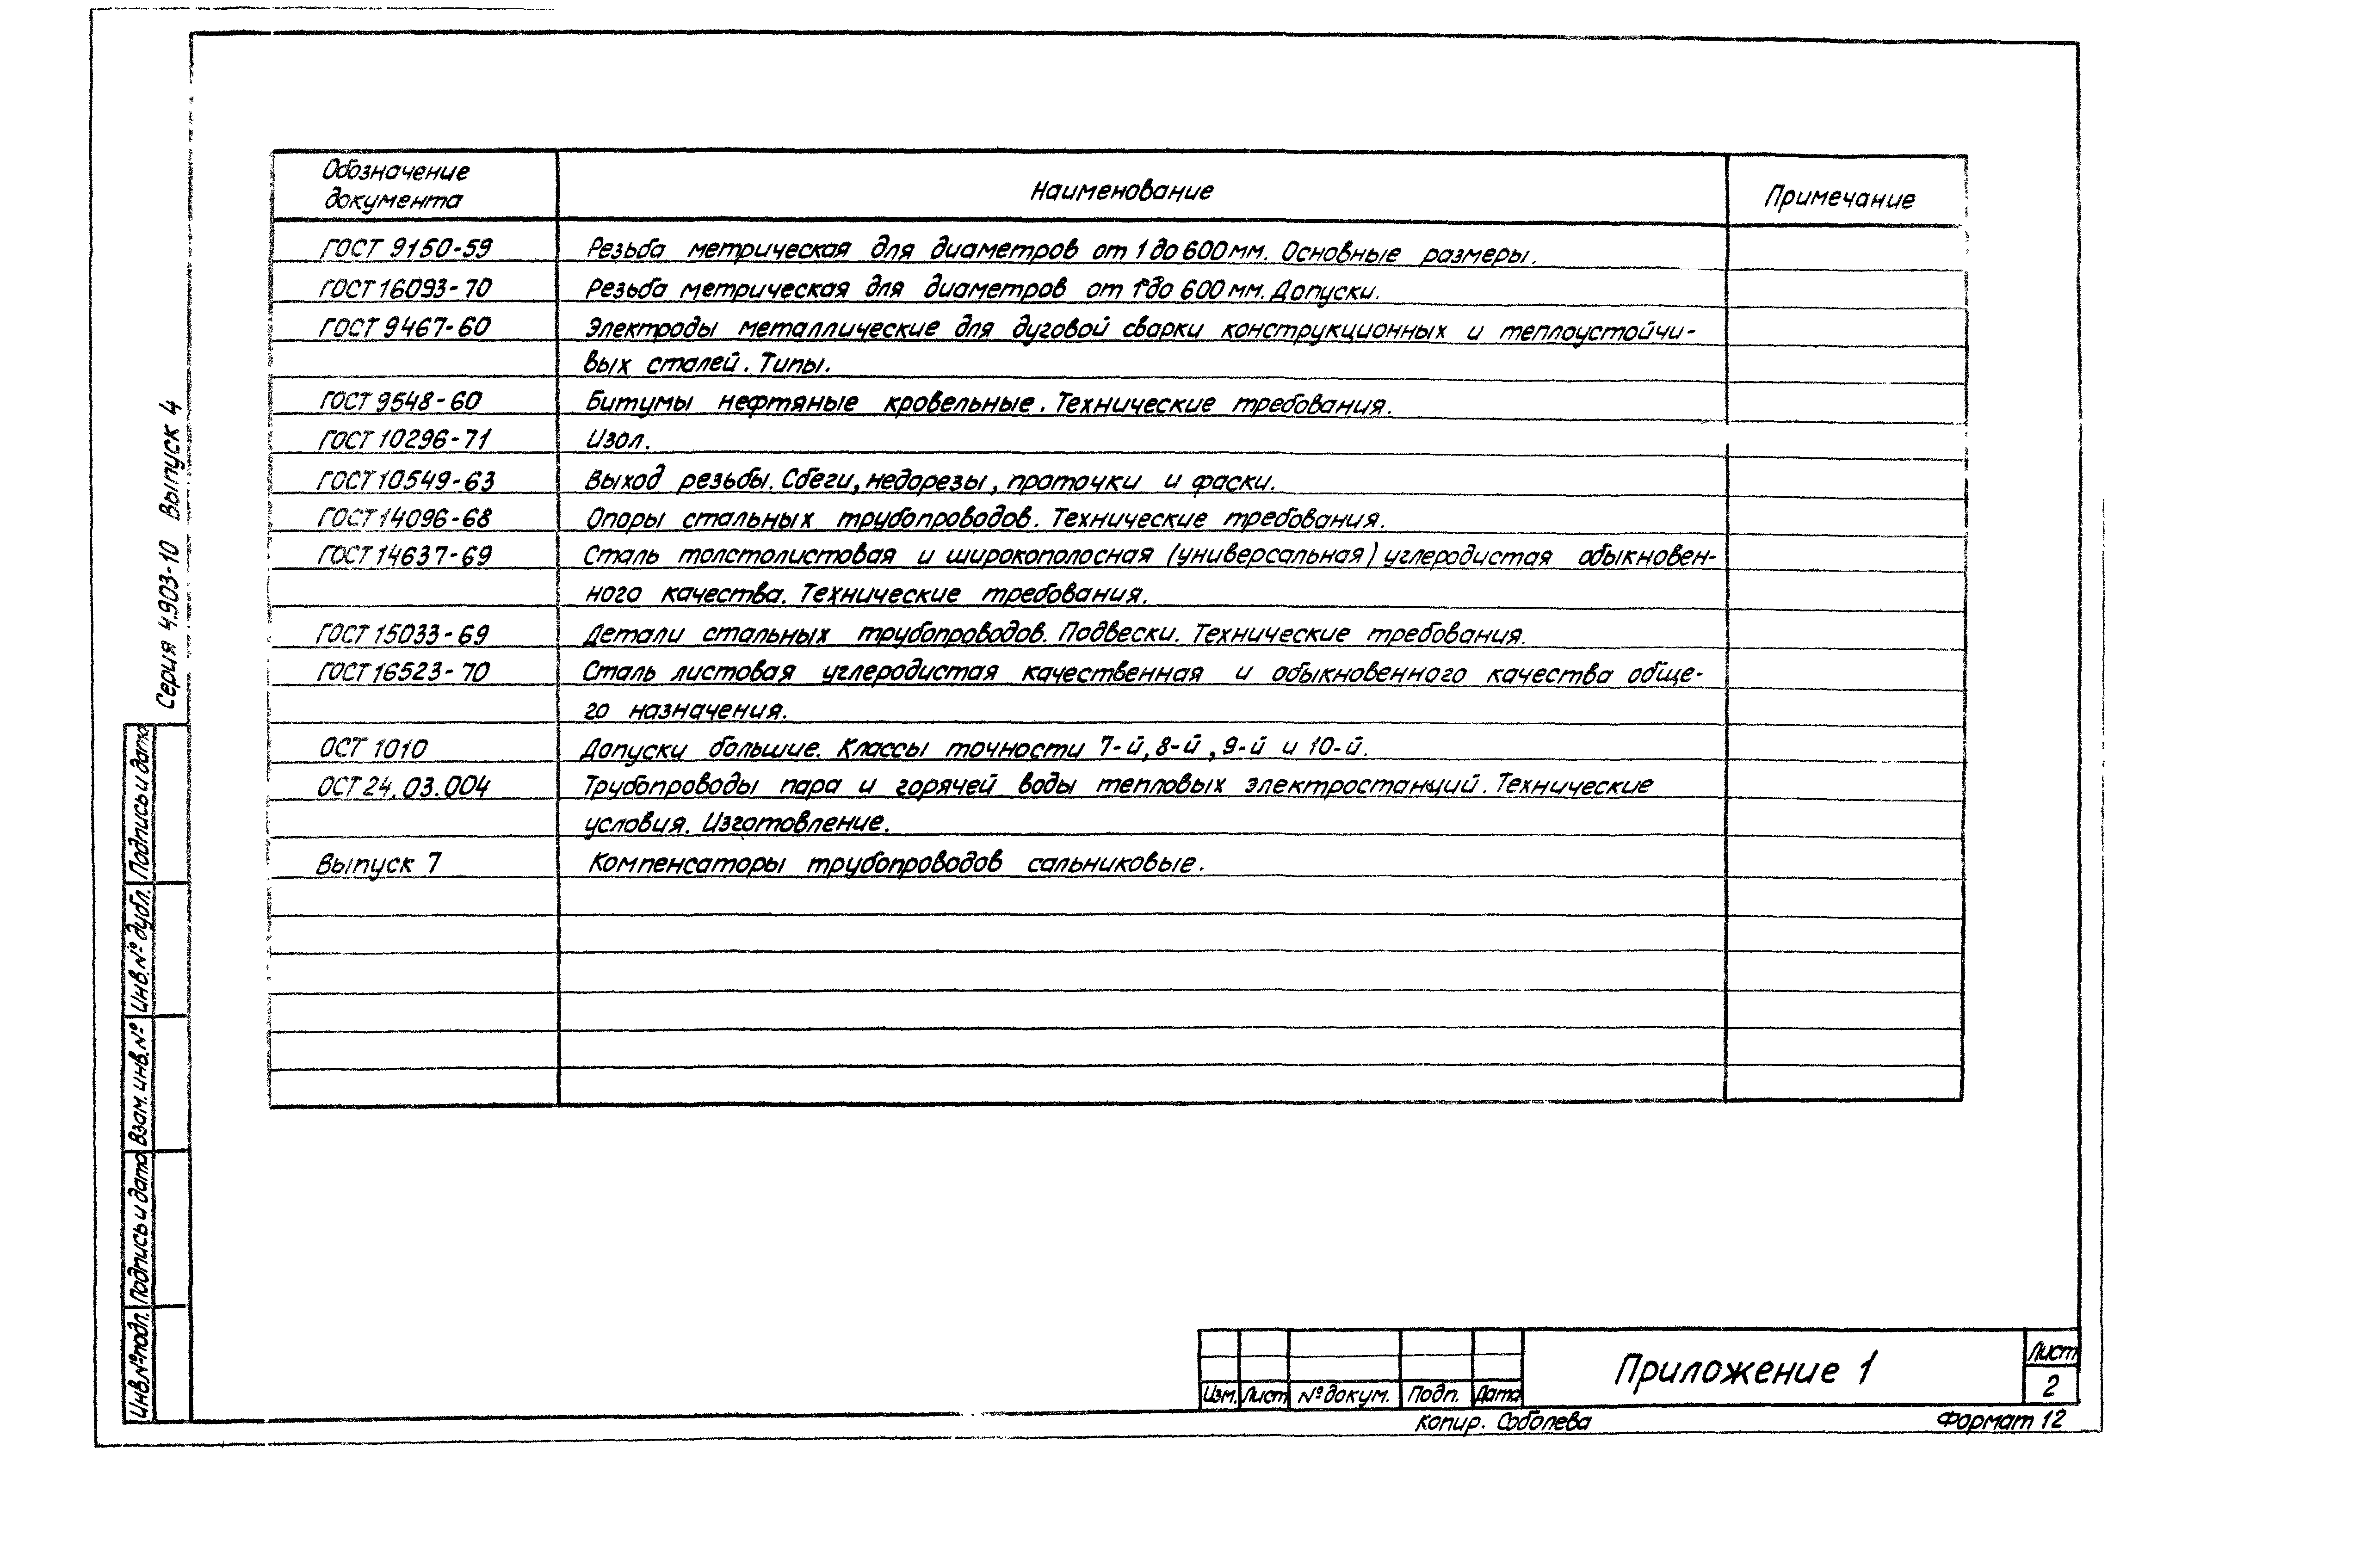 Обозначение
документа
Наименование
Примечание
ГОСТ 9150-59 Резьба метрическая для диаметров от 1 до 600 мм. Основные размеры.
ГОСТ 16093-70 Резьба метрическая для диаметров от 1 до 600 мм. Допуски.
ГОСТ 9467-60 Электроды металлические для дуговой сварки конструкционных и теплоустойчи-
вых сталей. Типы.
ГОСТ 9548-60 Битумы нефтяные кровельные. Технические требования.
ГОСТ 10296-71 Изол.
ГОСТ 10549-63 Выход резьбы. Сбеги, недорезы, проточки и фаски.
ГОСТ 14096-68 Опоры стальных трубопроводов. Технические требования.
ГОСТ 14637-69 Сталь толстолистовая и широкополосная (универсальная) углеродистая обыкновен-
ного качества. Технические требования.
ГОСТ 15033-69 Детали стальных трубопроводов. Подвески. Технические требования.
ГОСТ 16523-70 Сталь листовая углеродистая качественная и обыкновенного качества обще-
го назначения.
ОСТ 1010 Допуски большие. Классы точности 7-й, 8-й, 9-й и 10-й.
ОСТ 24.03.004 Трубопроводы пара и горячей воды тепловых электростанций. Технические
условия. Изготовление.
Выпуск 7 Компенсаторы трубопроводов сальниковые.
Серия 4.903-10 Выпуск 4
Инв.№ подл. Подпись и дата Взам. инв.№ Инв.№ дубл. Подпись и дата
Изм. Лист № докум. Подп. Дата
Приложение 1
Лист
2
Копир. Соболева
Формат 12